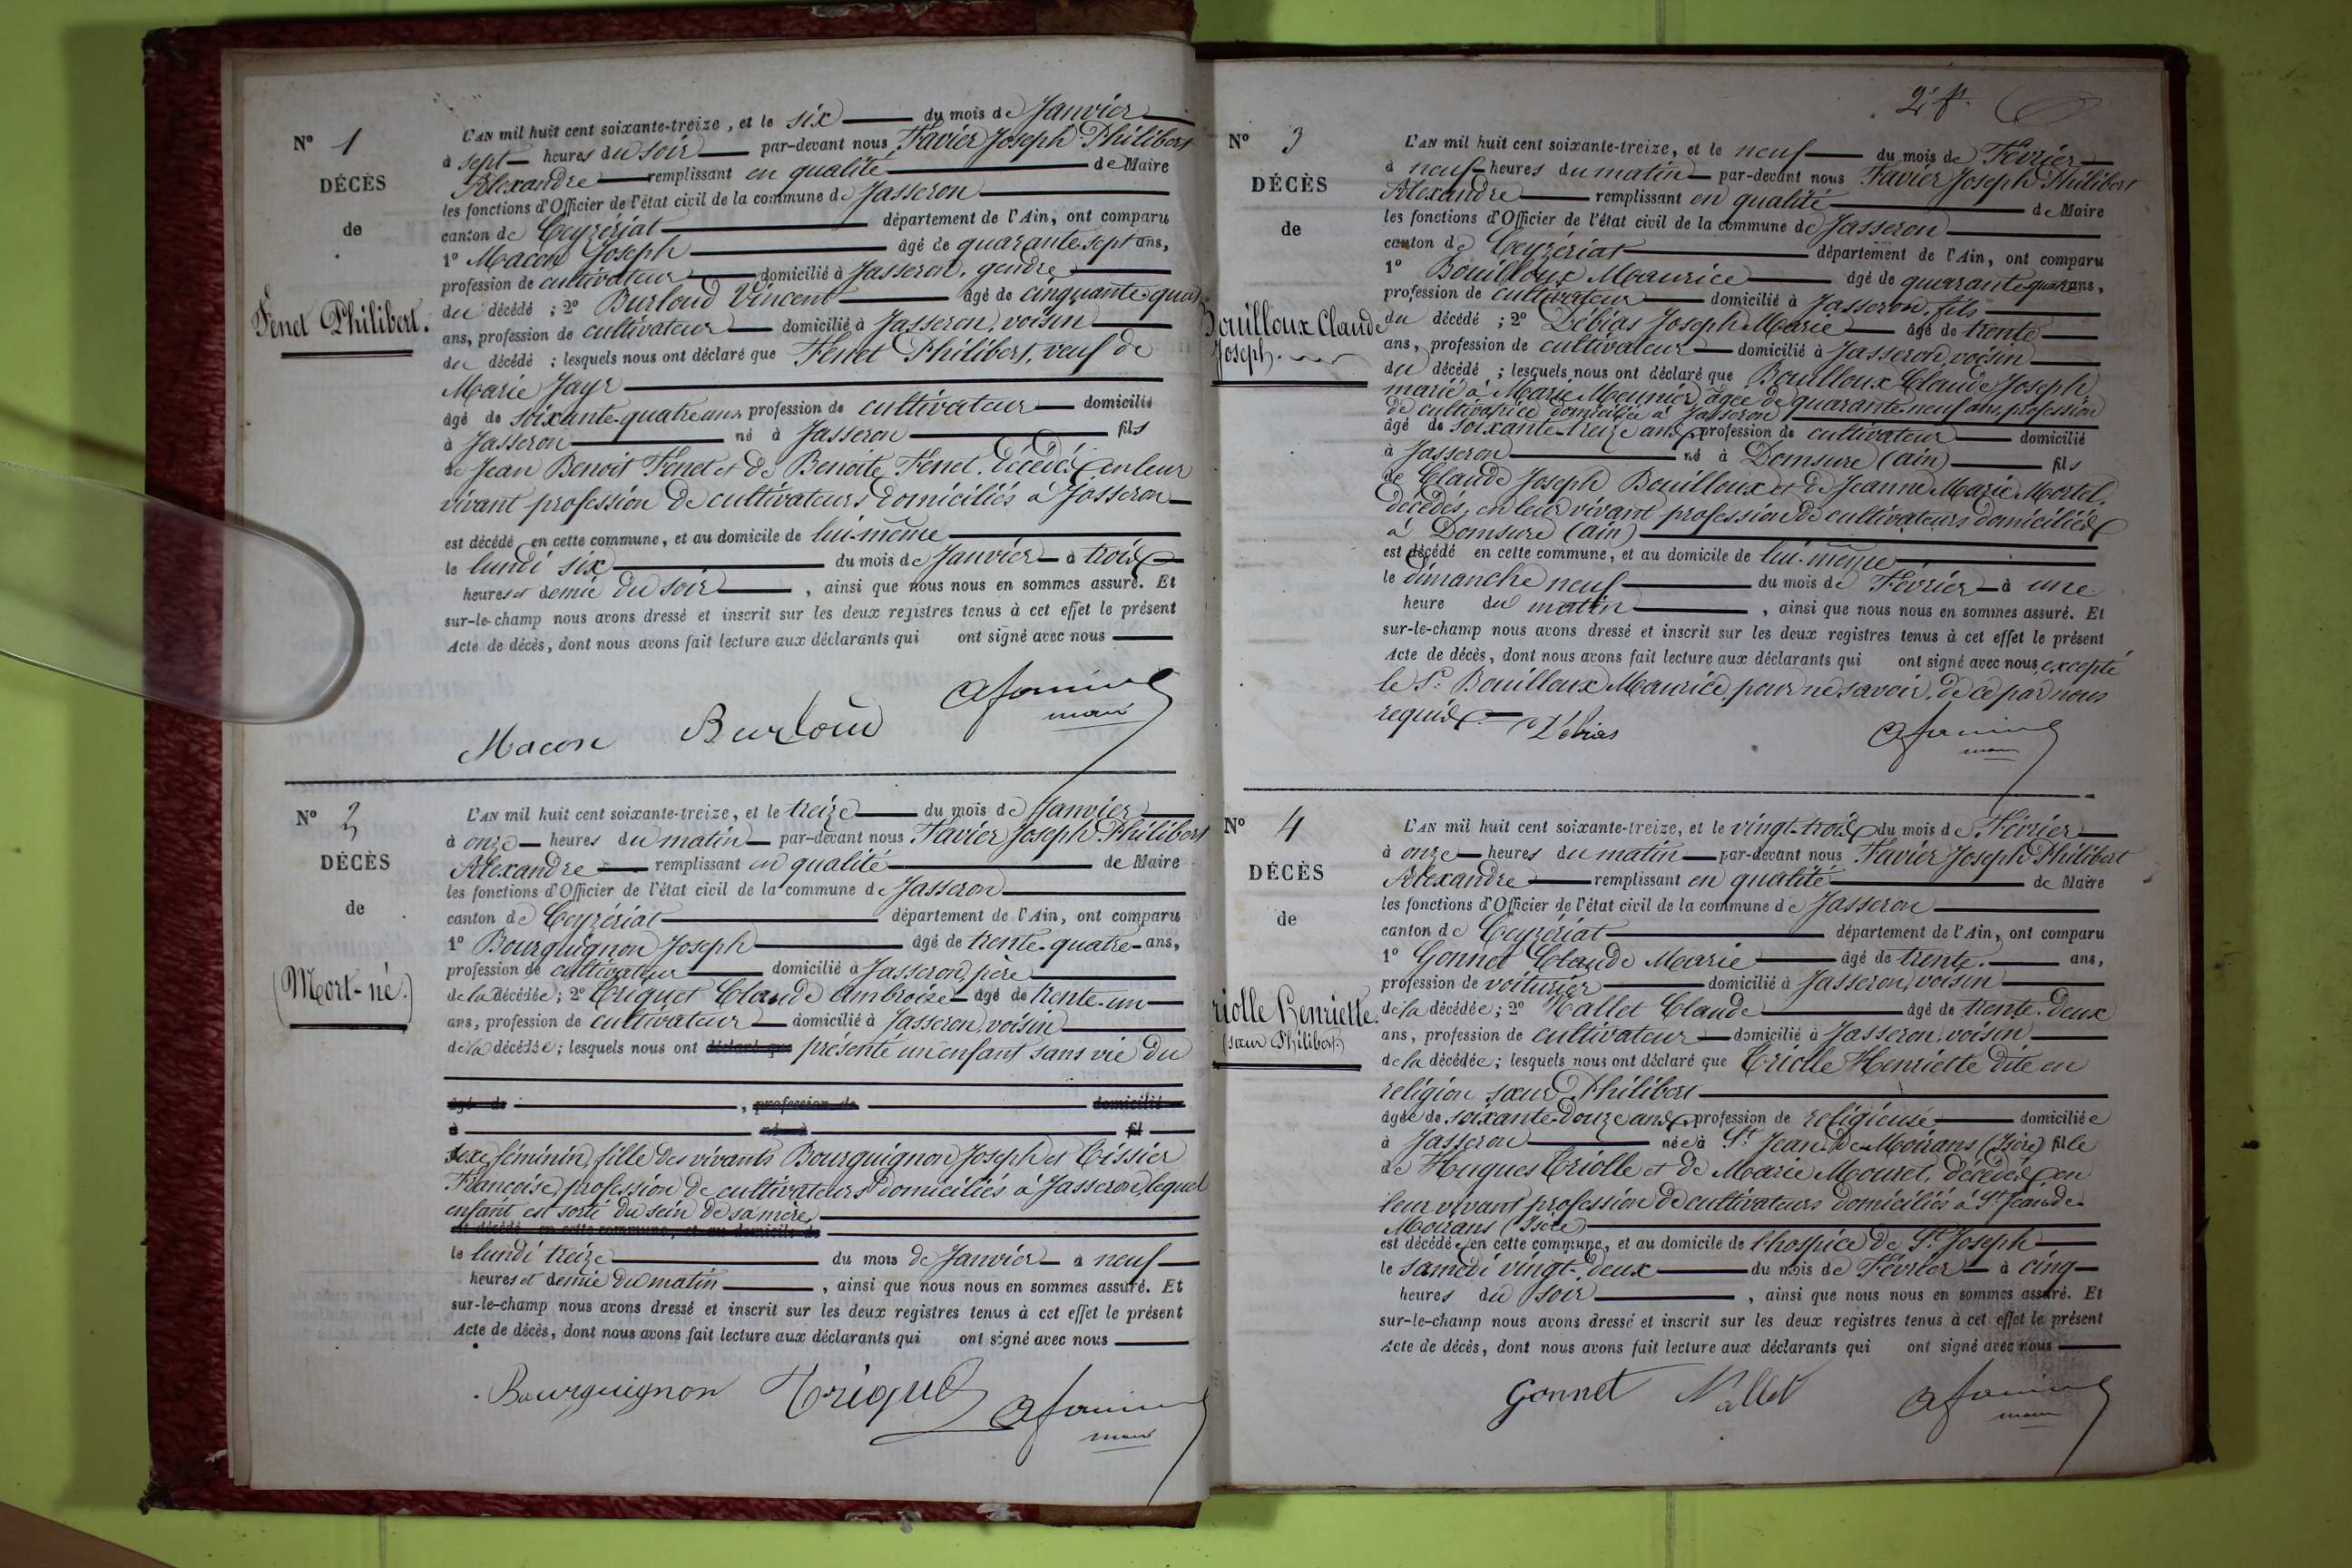 N° 1
DÉCÈS
de
Fenet Philibert.
L'AN mil huit cent soixante-treize, et le six du mois de Janvier
à sept heures du soir par-devant nous Favier Joseph Philibert
Alexandre remplissant en qualité de Maire
les fonctions d'Officier de l'état civil de la commune de Jasseron
canton de Ceyzériat département de l'Ain, ont comparu
1° Macon Joseph âgé de quarante-sept ans,
profession de cultivateur domicilié à Jasseron, gendre
du décédé ; 2° Burloud Vincent âgé de cinquante-quatre
ans, profession de cultivateur domicilié à Jasseron, voisin
du décédé ; lesquels nous ont déclaré que Fenet Philibert, veuf de
Marie Jayr
âgé de soixante-quatre ans profession de cultivateur domicilié
à Jasseron né à Jasseron fils
de Jean Benoit Fenet et de Benoite Fenet, décédés en leur
vivant profession de cultivateurs domiciliés à Jasseron
est décédé en cette commune, et au domicile de lui-même
le lundi six du mois de Janvier à trois
heures et demie du soir, ainsi que nous nous en sommes assuré. Et
sur-le-champ nous avons dressé et inscrit sur les deux registres tenus à cet effet le présent
Acte de décès, dont nous avons fait lecture aux déclarants qui ont signé avec nous
Macon Burloud
maire
N° 2
DÉCÈS
de
(Mort-né.)
L'AN mil huit cent soixante-treize, et le treize du mois de Janvier
à onze heures du matin par-devant nous Favier Joseph Philibert
Alexandre remplissant en qualité de Maire
les fonctions d'Officier de l'état civil de la commune de Jasseron
canton de Ceyzériat département de l'Ain, ont comparu
1° Bourguignon Joseph âgé de trente-quatre ans,
profession de cultivateur domicilié à Jasseron, père
de la décédée ; 2° Triquet Claude Ambroise âgé de trente-un
ans, profession de cultivateur domicilié à Jasseron, voisin
de la décédée ; lesquels nous ont déclaré que présenté un enfant sans vie du
âgé de , profession de domicilié
à né à fil
sexe féminin, fille des vivants Bourguignon Joseph et Tissier
Françoise, profession de cultivateurs domiciliés à Jasseron, lequel
enfant est sorti du sein de sa mère,
est décédé en cette commune, et au domicile de
le lundi treize du mois de Janvier à neuf
heures et demie du matin, ainsi que nous nous en sommes assuré. Et
sur-le-champ nous avons dressé et inscrit sur les deux registres tenus à cet effet le présent
Acte de décès, dont nous avons fait lecture aux déclarants qui ont signé avec nous
Bourguignon Triquet
maire
2e f.
N° 3
DÉCÈS
de
Bouilloux Claude
Joseph.
L'AN mil huit cent soixante-treize, et le neuf du mois de Février
à neuf heures du matin par-devant nous Favier Joseph Philibert
Alexandre remplissant en qualité de Maire
les fonctions d'Officier de l'état civil de la commune de Jasseron
canton de Ceyzériat département de l'Ain, ont comparu
1° Bouilloux Maurice âgé de quarante-quatre ans,
profession de cultivateur domicilié à Jasseron, fils
du décédé ; 2° Débias Joseph Marie âgé de trente
ans, profession de cultivateur domicilié à Jasseron, voisin
du décédé ; lesquels nous ont déclaré que Bouilloux Claude Joseph,
marié à Marie Meunier, âgée de quarante-neuf ans, profession
de cultivatrice domiciliée à Jasseron
âgé de soixante-treize ans, profession de cultivateur domicilié
à Jasseron né à Domsure (ain) fils
de Claude Joseph Bouilloux et de Jeanne Marie Mortel,
décédés, en leur vivant profession de cultivateurs domiciliés
à Domsure (ain)
est décédé en cette commune, et au domicile de lui-même
le dimanche neuf du mois de Février à une
heure du matin, ainsi que nous nous en sommes assuré. Et
sur-le-champ nous avons dressé et inscrit sur les deux registres tenus à cet effet le présent
Acte de décès, dont nous avons fait lecture aux déclarants qui ont signé avec nous, excepté
le Sr. Bouilloux Maurice, pour ne savoir, de ce par nous
requis.
Débias
maire
N° 4
DÉCÈS
de
riolle Henriette.
(sœur Philibert)
L'AN mil huit cent soixante-treize, et le vingt-trois du mois de Février
à onze heures du matin par-devant nous Favier Joseph Philibert
Alexandre remplissant en qualité de Maire
les fonctions d'Officier de l'état civil de la commune de Jasseron
canton de Ceyzériat département de l'Ain, ont comparu
1° Gonnet Claude Marie âgé de trente ans,
profession de voiturier domicilié à Jasseron, voisin
de la décédée ; 2° Nallet Claude âgé de trente-deux
ans, profession de cultivateur domicilié à Jasseron, voisin
de la décédée ; lesquels nous ont déclaré que Triolle Henriette dite en
religion sœur Philibert
âgée de soixante-douze ans, profession de religieuse domiciliée
à Jasseron née à St Jean-de-Moirans (Isère) fille
de Hugues Triolle et de Marie Mouret, décédés en
leur vivant profession de cultivateurs domiciliés à St Jean de
Moirans (Isère)
est décédée en cette commune, et au domicile de l'hospice de St Joseph
le samedi vingt-deux du mois de Février à cinq
heures du soir, ainsi que nous nous en sommes assuré. Et
sur-le-champ nous avons dressé et inscrit sur les deux registres tenus à cet effet le présent
Acte de décès, dont nous avons fait lecture aux déclarants qui ont signé avec nous
Gonnet Nallet
maire